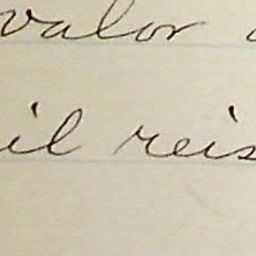 valor
il reis